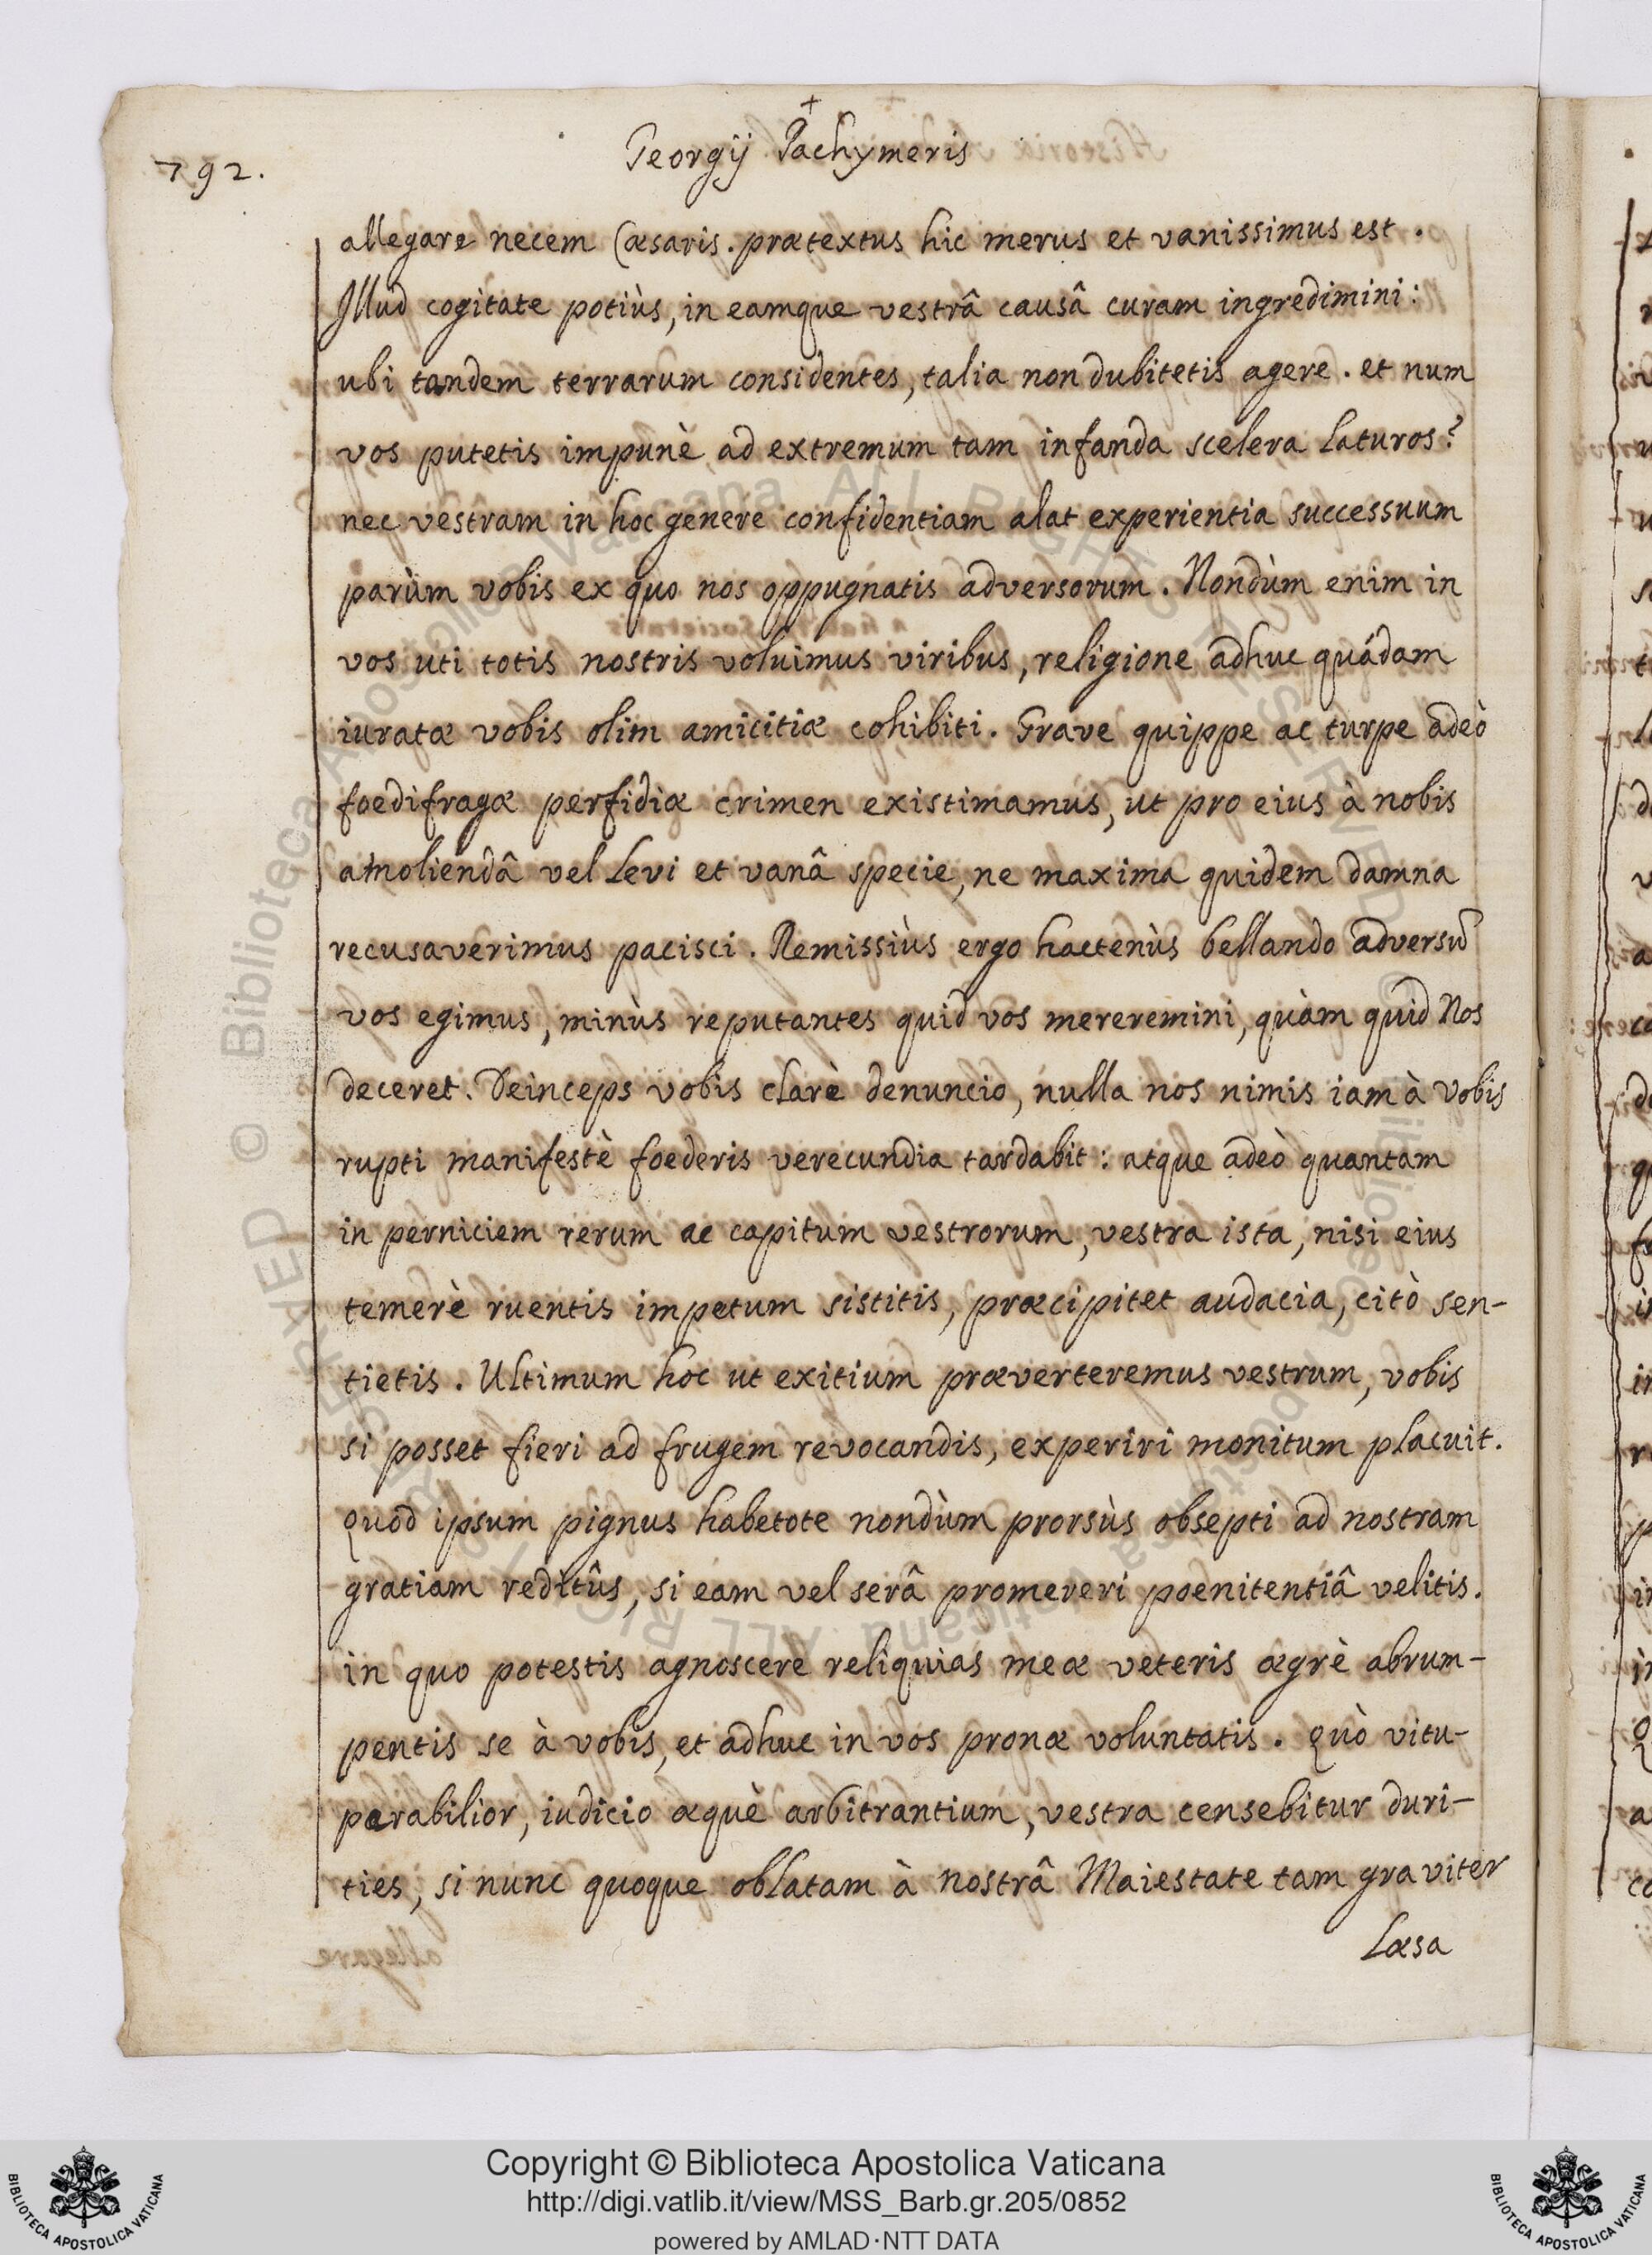 +
792.
Georgij Pachymeris
allegare necem Cæsaris. prætextus hic merus et vanissimus est.
Illud cogitate potiùs, in eamque vestrâ causâ curam ingredimini:
ubi tandem terrarum considentes, talia non dubitetis agere. et num
vos putetis impunè ad extremum tam infanda scelera laturos?
nec vestram in hoc genere confidentiam alat experientia successuum
parùm vobis ex quo nos oppugnatis adversorum. Nondùm enim in
vos uti totis nostris voluimus viribus, religione adhuc quâdam
iuratæ vobis olim amicitiæ cohibiti. Grave quippe ac turpe adeò
foedifragæ perfidiæ crimen existimamus, ut pro eius à nobis
amoliendâ vel levi et vanâ specie, ne maxima quidem damna
recusaverimus pacisci. Remissiùs ergo hactenùs bellando adversũ
vos egimus, minùs reputantes quid vos mereremini, quàm quid Nos
deceret. Deinceps vobis clarè denuncio, nulla nos nimis iam à vobis
rupti manifestè foederis verecundia tardabit: atque adeò quantam
in perniciem rerum ac capitum vestrorum, vestra ista, nisi eius
temerè ruentis impetum sistitis, præcipitet audacia, citò sen-
tietis. Ultimum hoc ut exitium præverteremus vestrum, vobis
si posset fieri ad frugem revocandis, experiri monitum placuit.
quod ipsum pignus habetote nondùm prorsùs obsepti ad nostram
gratiam reditûs, si eam vel serâ promereri poenitentiâ velitis.
in quo potestis agnoscere reliquias meæ veteris ægrè abrum-
pentis se à vobis, et adhuc in vos pronæ voluntatis. Quò vitu-
perabilior, iudicio æquè arbitrantium, vestra censebitur duri-
ties, si nunc quoque oblatam à nostrâ Maiestate tam graviter
læsa
Copyright © Biblioteca Apostolica Vaticana
http://digi.vatlib.it/view/MSS_Barb.gr.205/0852
powered by AMLAD·NTT DATA
BIBLIOTECA APOSTOLICA VATICANA
BIBLIOTECA APOSTOLICA VATICANA